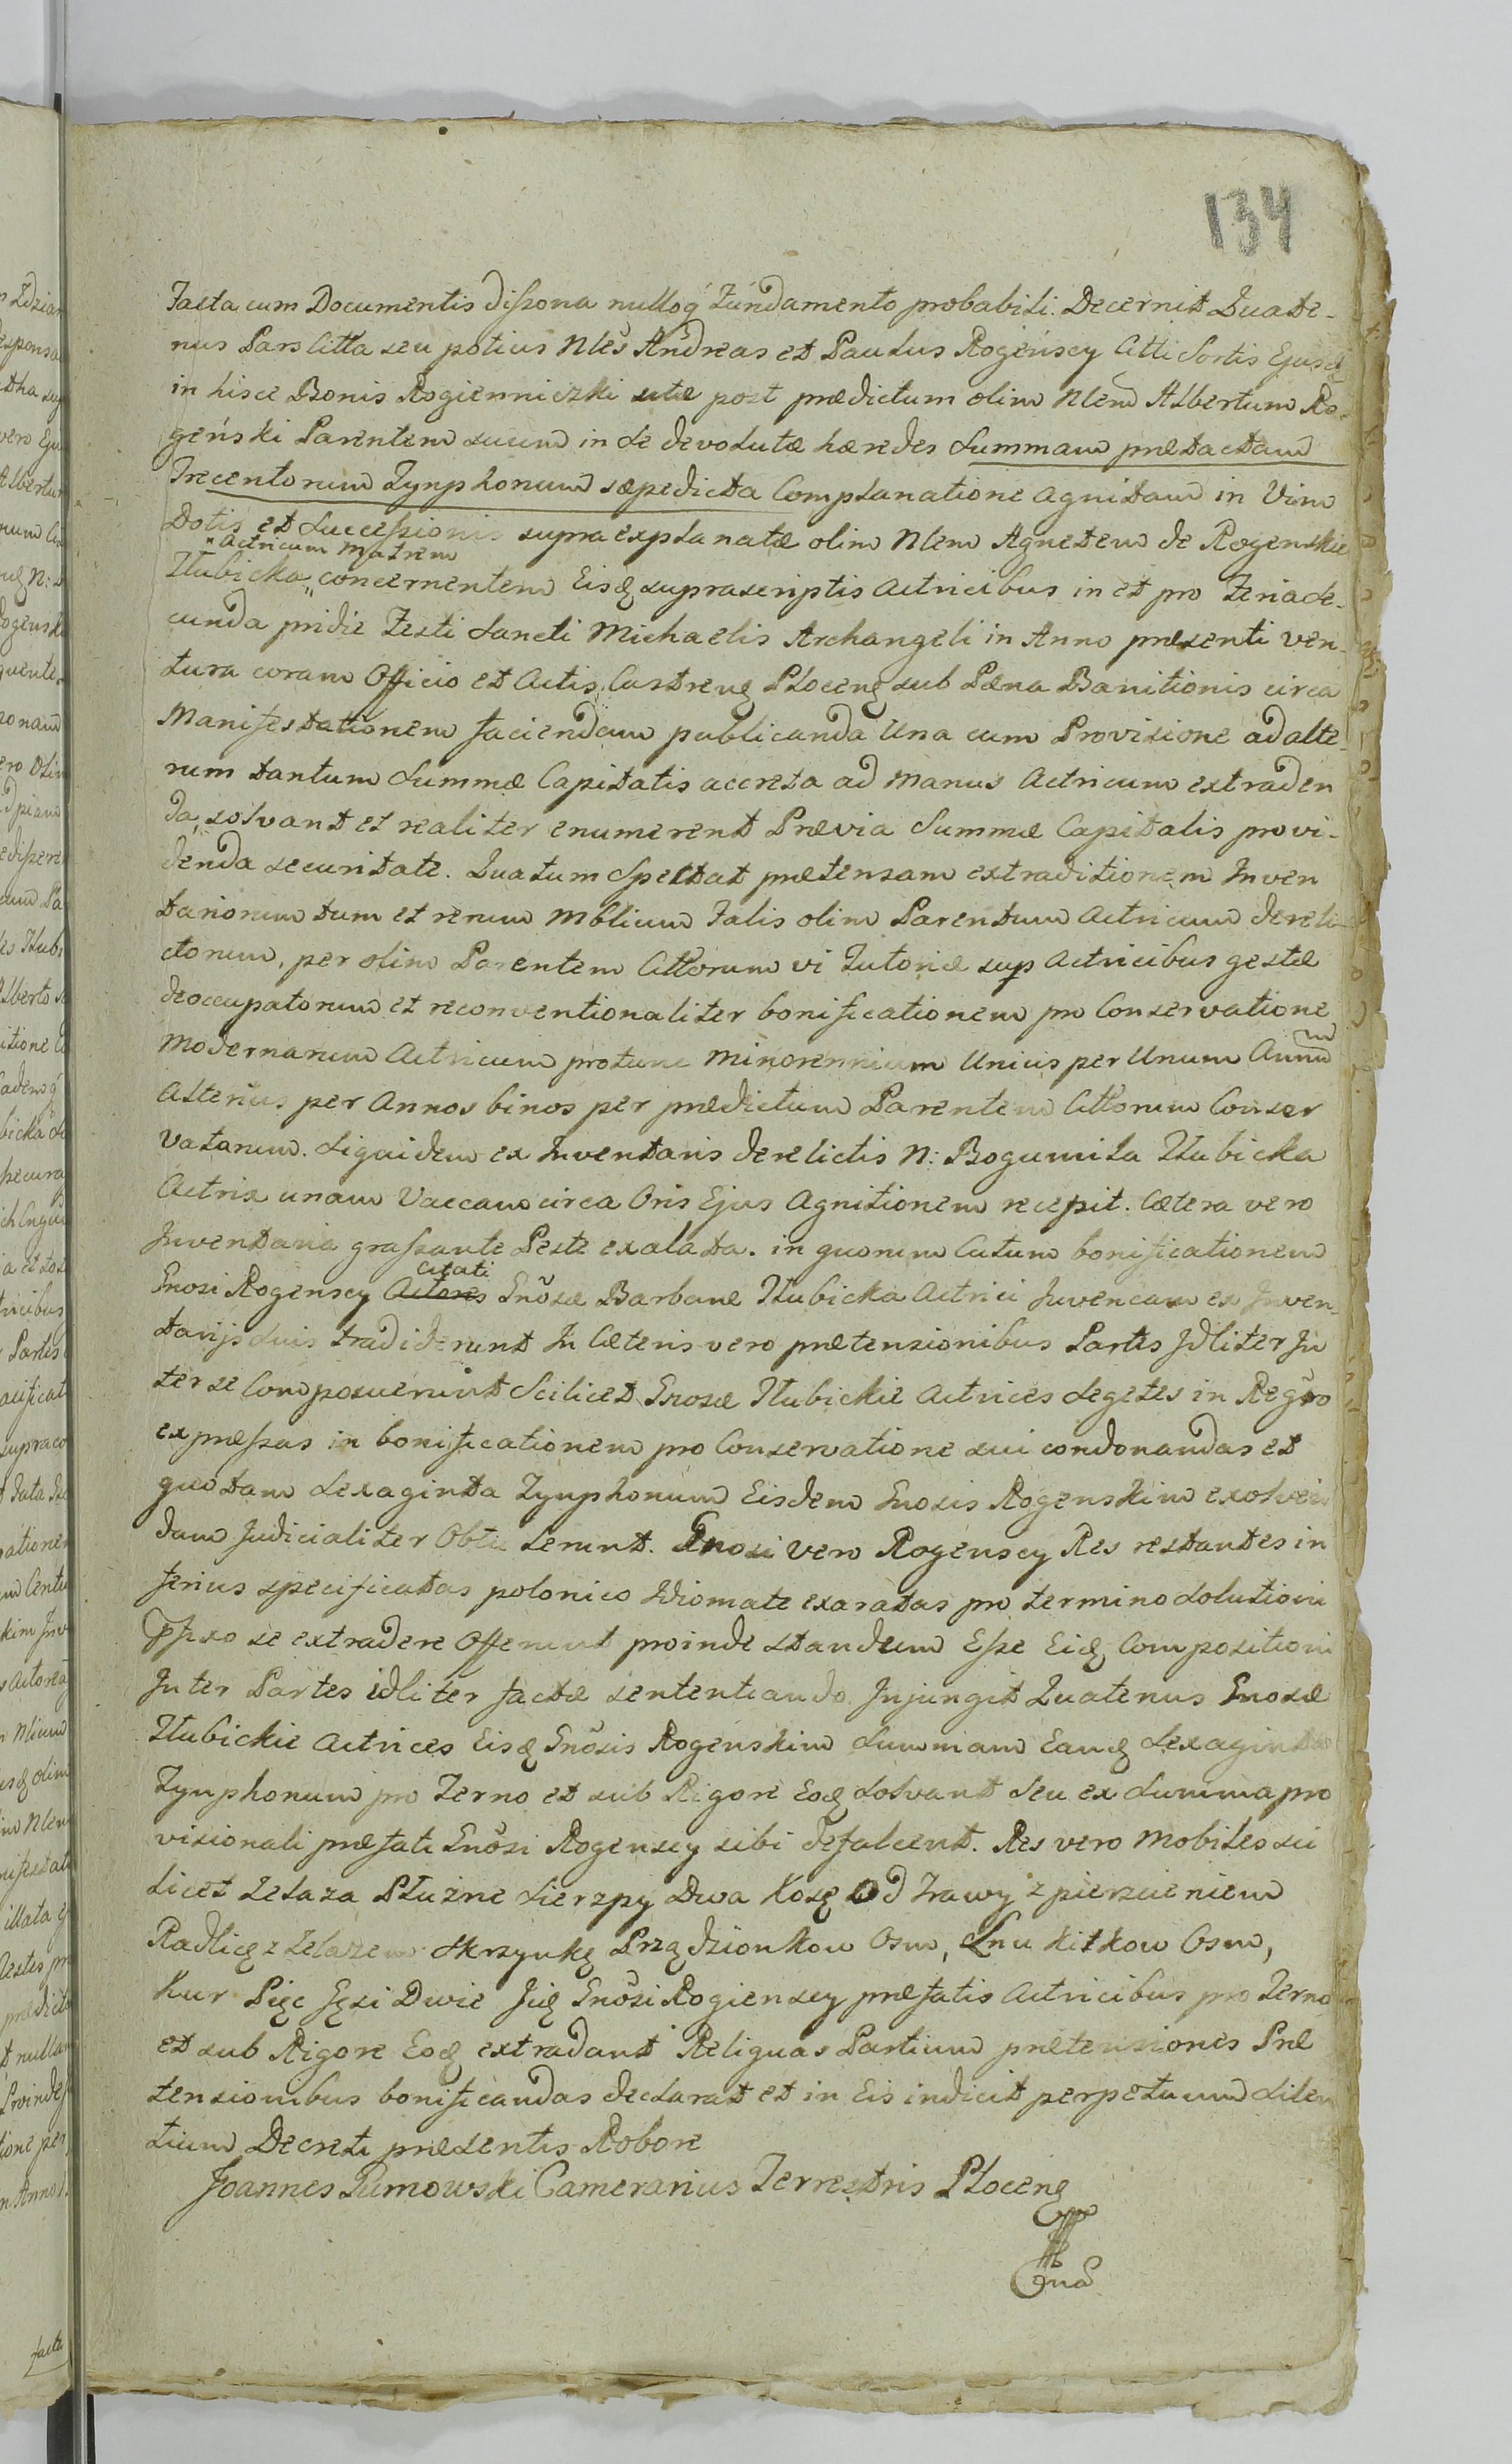 134
Facta cum Documentis dissona nulloq' Fundamento probabili. Decernit Quate-
nus Pars Citta seu potius Nles Andreas et Paulus Rogeńscy Citti Sortis Ejusd
in hisce Bonis Rogienniczki utæ post prædictum olim Nlem Albertum Ro-
geński Parentem suum in se devolutæ hæredes Summam prætactam
Trecentorum Tynphonum sæpedicta Complanatione agnitam in Vim
Dotis et Successionis supra explanatæ olim Nlem Agnetem de Rogenskie
" Actricum Matrem
Hubicka " concernentem Eisq supra scriptis Actricibus in et pro Feria se-
cunda pridie Festi Sancti Michaelis Archangeli in Anno præsenti ven-
tura coram Officio et Actis Castrenq Plocenq sub Pæna Banitionis circa
Manifestationem faciendam publicanda Una cum Provisione ad alte-
rum tantum Summæ Capitalis accreta ad Manus Actricum extraden
da, solvant et realiter enumerent Prævia Summæ Capitalis provi-
denda securitate. Quatum Spectat prætensam extraditionem Inven
tariorum tum et rerum Mblium Falis olim Parentum Actricum dereli-
ctorum, per olim Parentem Cittorum vi Tutoriæ sup Actricibus gestæ
deoccupatorum et reconventionaliter bonificationem pro Conservatione
Modernarum Actricum protunc Minorennium Unius per Unum Annum
Alterius per Annos binos per prædictum Parentem Cittorum Conser
vatarum. Siquidem ex Inventaris derelictis N: Bogumila Hubicka
Actrix unam Vaccam circa Oris Ejus Agnitionem recepit. Cætera vero
Inventaria grassante Peste exalata. in quorum Cutum bonificationem
Citati
Gnosi Rogenscy Actores Gnosæ Barbaræ Hubicka Actrici Juvencam ex Inven-
tarijs suis tradiderunt In Cæteris vero prætensionibus Partes Jdliter In
ter se Composuerunt Scilicet Gnosæ Hubickie Actrices Segetes in Regtro
expressas in bonificationem pro Conservatione sui condonandas et
quotam Sexaginta Tynphonum Eisdem Gnosis Rogenskim exolven
dam Judicialiter Obtulerunt. Gnosi vero Rogenscy Res restantes in
ferius specificatas polonico Idiomate exaratas pro termino Solutioni
præfixo se extradere Offerunt proinde standum Esse Eidq Compositioni
Inter Partes idliter factæ sententiando Injungit Quatenus Gnosæ
Hubickie Actrices Eisq Gnosis Rogenskim Summam Eanq Sexaginta
Tynphonum pro Terno et sub Rigore Eoq Solvant Seu ex Summa pro
visionali præfati Gnosi Rogenscy sibi defalcent. Res vero Mobiles sci
licet Zelaza Płużne Sierzpy Dwa Kosę Od Trawy z pierzcieniem
Radlicę z Zelazem Skrzynkę Przędzionkow Osm, Lnu kitkow Osm,
Kur Pięc Gęsi Dwie Jiq Gnosi Rogienscy præfatis Actricibus pro Terno
et sub Rigore Eoq extradant Reliquas Partium prætensiones Præ
tensionibus bonificandas declarat et in Eis indicit perpetuum Silen
tium Decreti præsentis Robore
Joannes Rumowski Camerarius Terrestris Plocenq